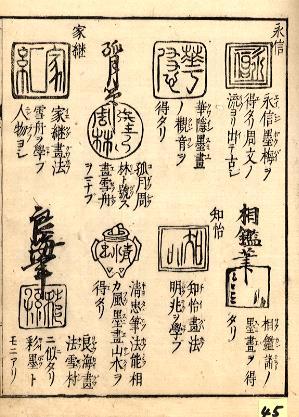 永信
永信墨梅ヲ
得タリ周文ノ
流ヨリ出テ古シ
華隠墨畫
ノ觀音ヲ
得タリ
孤月筆
周林
孤月周
林ト號ス
畫雪舟
ヲマナブ
家継
家継畫法
雪舟ヲ學ブ
人物ヨシ
相鑑筆
相鑑諸ノ
墨畫ヲ得
タリ
知怡
知怡畫法
明兆ヲ學ブ
清忠筆法能相
カ風墨畫山水ヲ
得タリ
良海筆
良海畫
法雪村
ニ似タリ
彩墨トモニアリ
45